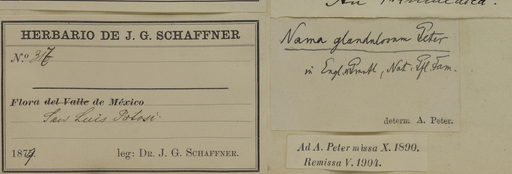 HERBARIO DE J. G. SCHAFFNER
No. 317
Flora del Valle de México
San Luis Potosi.
1879 leg: DR. J. G. SCHAFFNER.
Nama glandulosum Peter
in Engl. u Prantl, Nat. Pfl. Fam.
determ A. Peter.
Ad A. Peter missa X. 1890.
Remissa V. 1904.